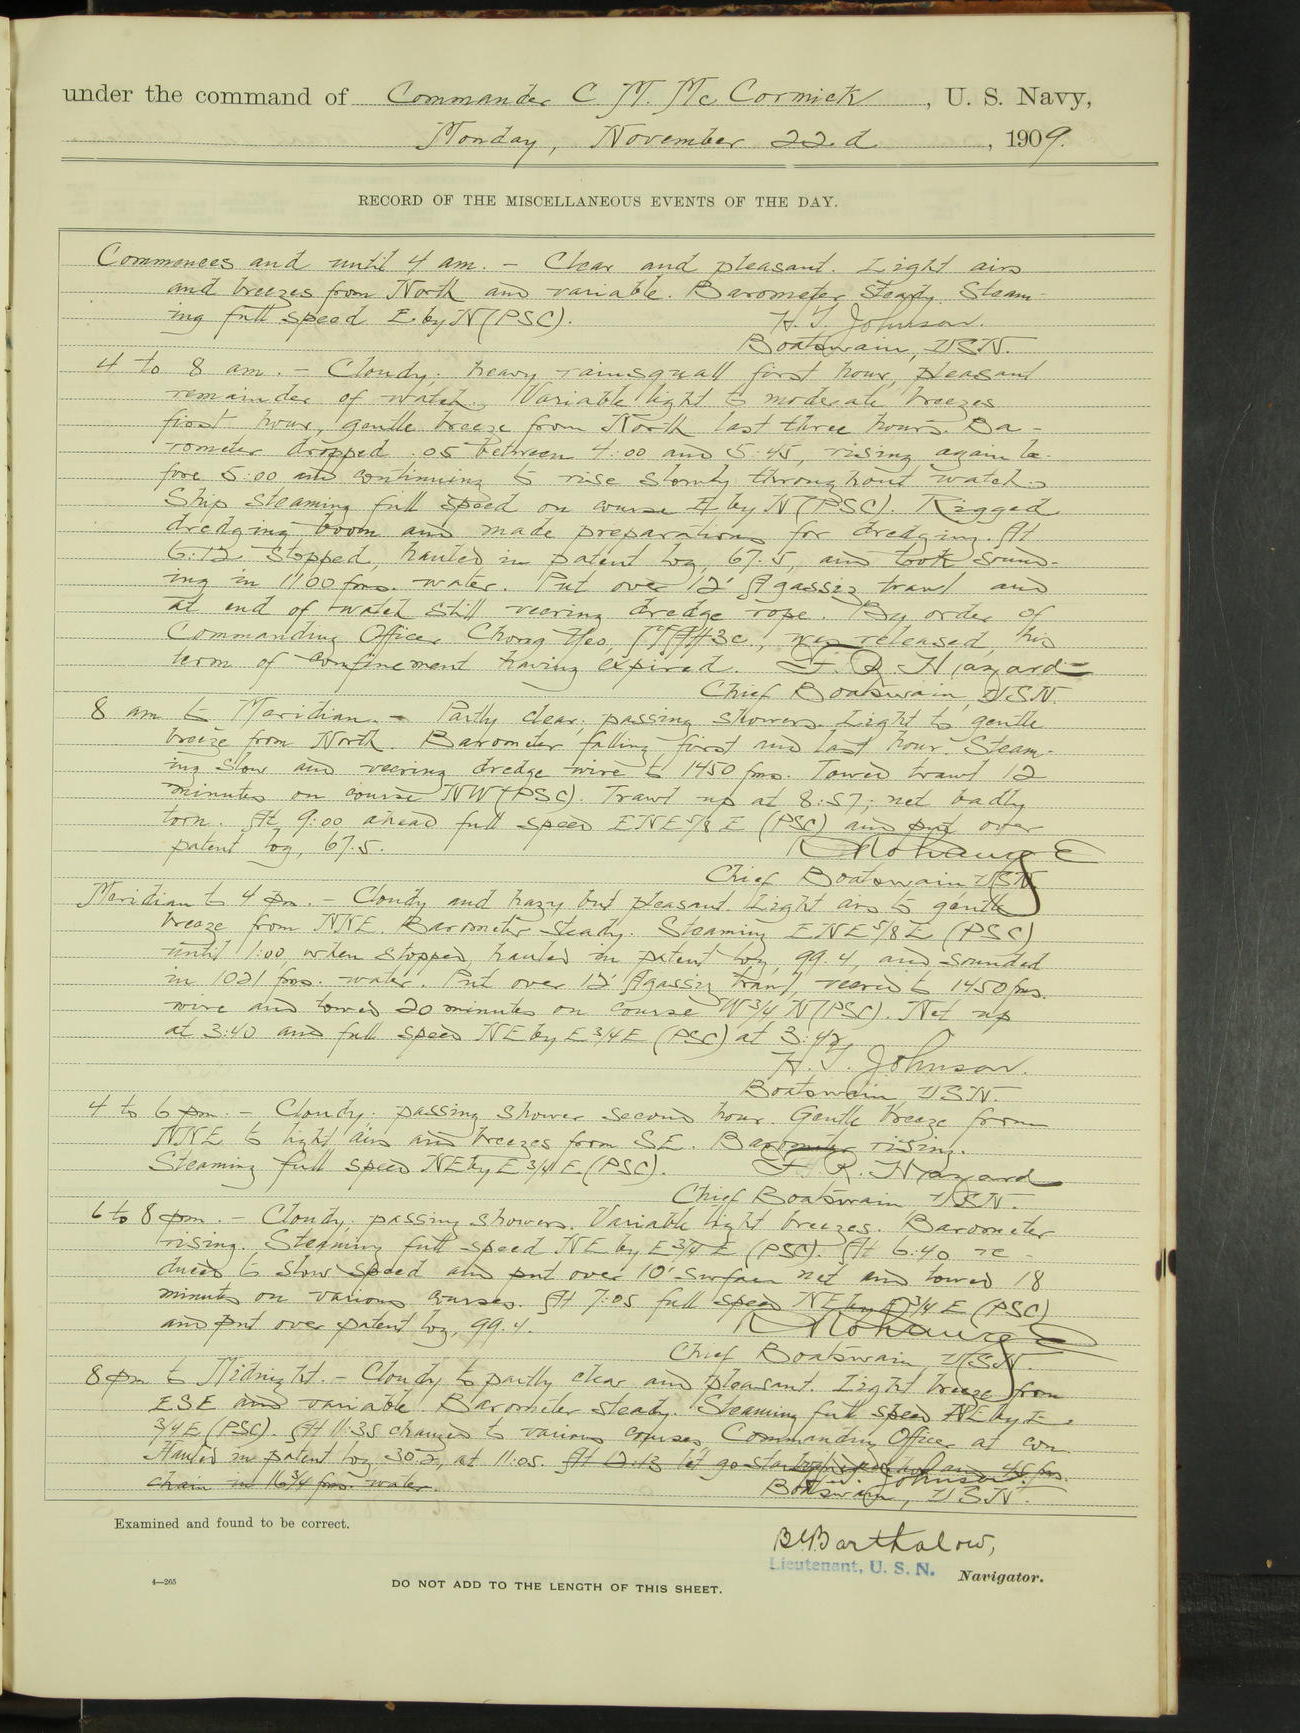 under the command of Commander C. M. McCormick, U. S. Navy,
Monday, November 22d, 1909.
RECORD OF THE MISCELLANEOUS EVENTS OF THE DAY.
Commences and until 4 am. - Clear and pleasant. Light airs
and breezes from North and variable. Barometer steady. Steam-
ing full speed E. by N (PSC).
H. T. Johnson.
Boatswain, USN.
4 to 8 am. - Cloudy; heavy rainsquall first hour, pleasant
remainder of watch. Variable light to moderate breezes
first hour, gentle breeze from North last three hours. Ba-
rometer dropped .05 between 4:00 and 5:45, rising again be-
fore 5:00 and continuing to rise slowly throughout watch.
Ship steaming full speed on course E by N (PSC). Rigged
dredging boom and made preparations for dredging. At
6:12 stopped, hauled in patent log, 67.5, and took sound-
ing in 1100 fms. water. Put over 12' Agassiz trawl and
at end of watch still veering dredge rope. By order of
Commanding Officer Chong Heo, 3c., was released, his
term of confinement having expired. F. R. Hazard
Chief Boatswain, USN.
8 am to Meridian. - Partly clear; passing showers. Light to gentle
breeze from North. Barometer falling first and last hour. Steam-
ing slow and veering dredge wire to 1450 fms. Towed trawl 12
minutes on course NW (PSC). Trawl up at 8:57; net badly
torn. At 9:00 ahead full speed ENE 5/8 E (PSC) and put over
patent log, 67.5.
Chief Boatswain USN.
Meridian to 4 pm. - Cloudy and hazy but pleasant. Light airs to gentle
breeze from NNE. Barometer steady. Steaming ENE 5/8 E (PSC)
until 1:00, when stopped, hauled in patent log, 99.4, and sounded
in 1021 fms. water. Put over 12' Agassiz trawl, veered to 1450 fms.
wire and towed 20 minutes on course W 3/4 N (PSC). Net up
at 3:40 and full speed NE by E 3/4 E (PSC) at 3:42.
H. T. Johnson.
Boatswain USN.
4 to 6 pm. - Cloudy; passing shower second hour. Gentle breeze from
NNE to light airs and breezes from SE. Barometer rising.
Steaming full speed NE by E 3/4 E (PSC). F. R. Hazard
Chief Boatswain USN.
6 to 8 pm. - Cloudy; passing showers. Variable light breezes. Barometer
rising. Steaming full speed NE by E 3/4 E (PSC). At 6:40 re-
duced to slow speed and put over 10' surface net and towed 18
minutes on various courses. At 7:05 full speed NE by E 3/4 E (PSC)
and put over patent log, 99.4.
Chief Boatswain, USN.
8 pm to Midnight. - Cloudy to partly clear and pleasant. Light breeze from
ESE and variable. Barometer steady. Steaming full speed NE by E
3/4 E (PSC). At 11:35 changed to various courses, Commanding Officer at con.
Hauled in patent log, 30.2, at 11:05. At 12:13 let go starboard
chain in 16 3/4 fms. water. Johnson.
Boatswain, USN.
Examined and found to be correct.
B Barthalow,
Lieutenant, U. S. N. Navigator.
4—265
DO NOT ADD TO THE LENGTH OF THIS SHEET.